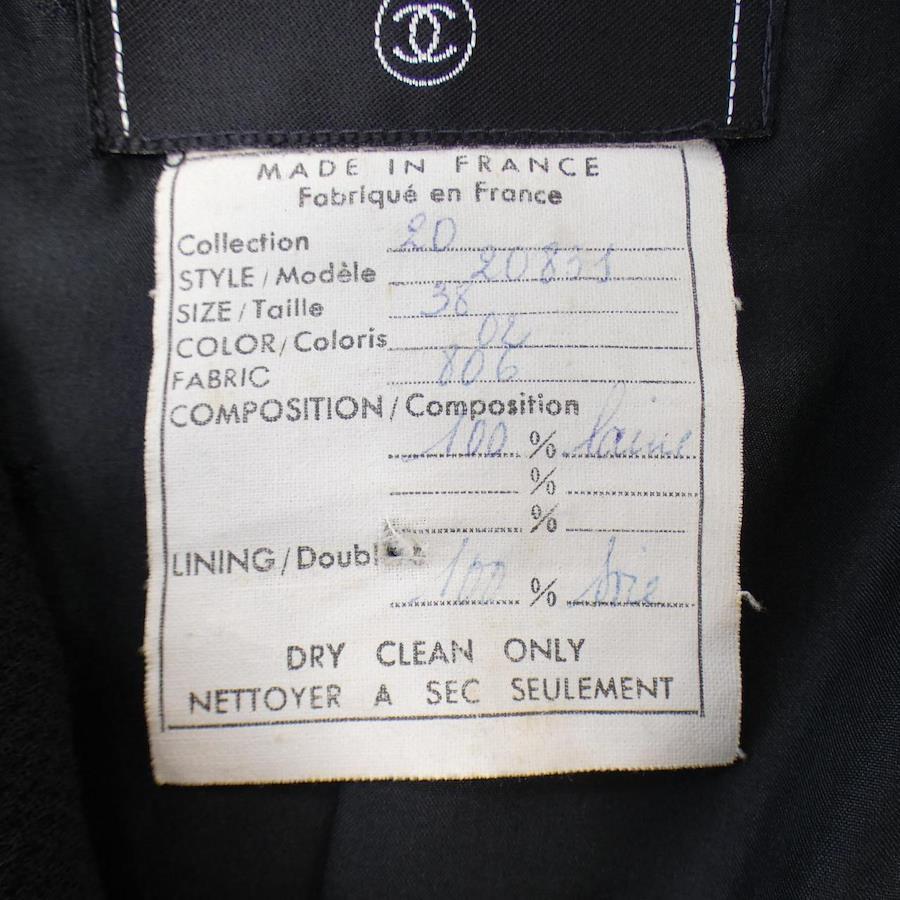 MADE IN FRANCE
Fabriqué en France
Collection 20
STYLE / Modèle 20831
SIZE / Taille 38
COLOR / Coloris 02
FABRIC 806
COMPOSITION / Composition
100 % laine
%
%
LINING / Doubl
100 % soie
DRY CLEAN ONLY
NETTOYER A SEC SEULEMENT